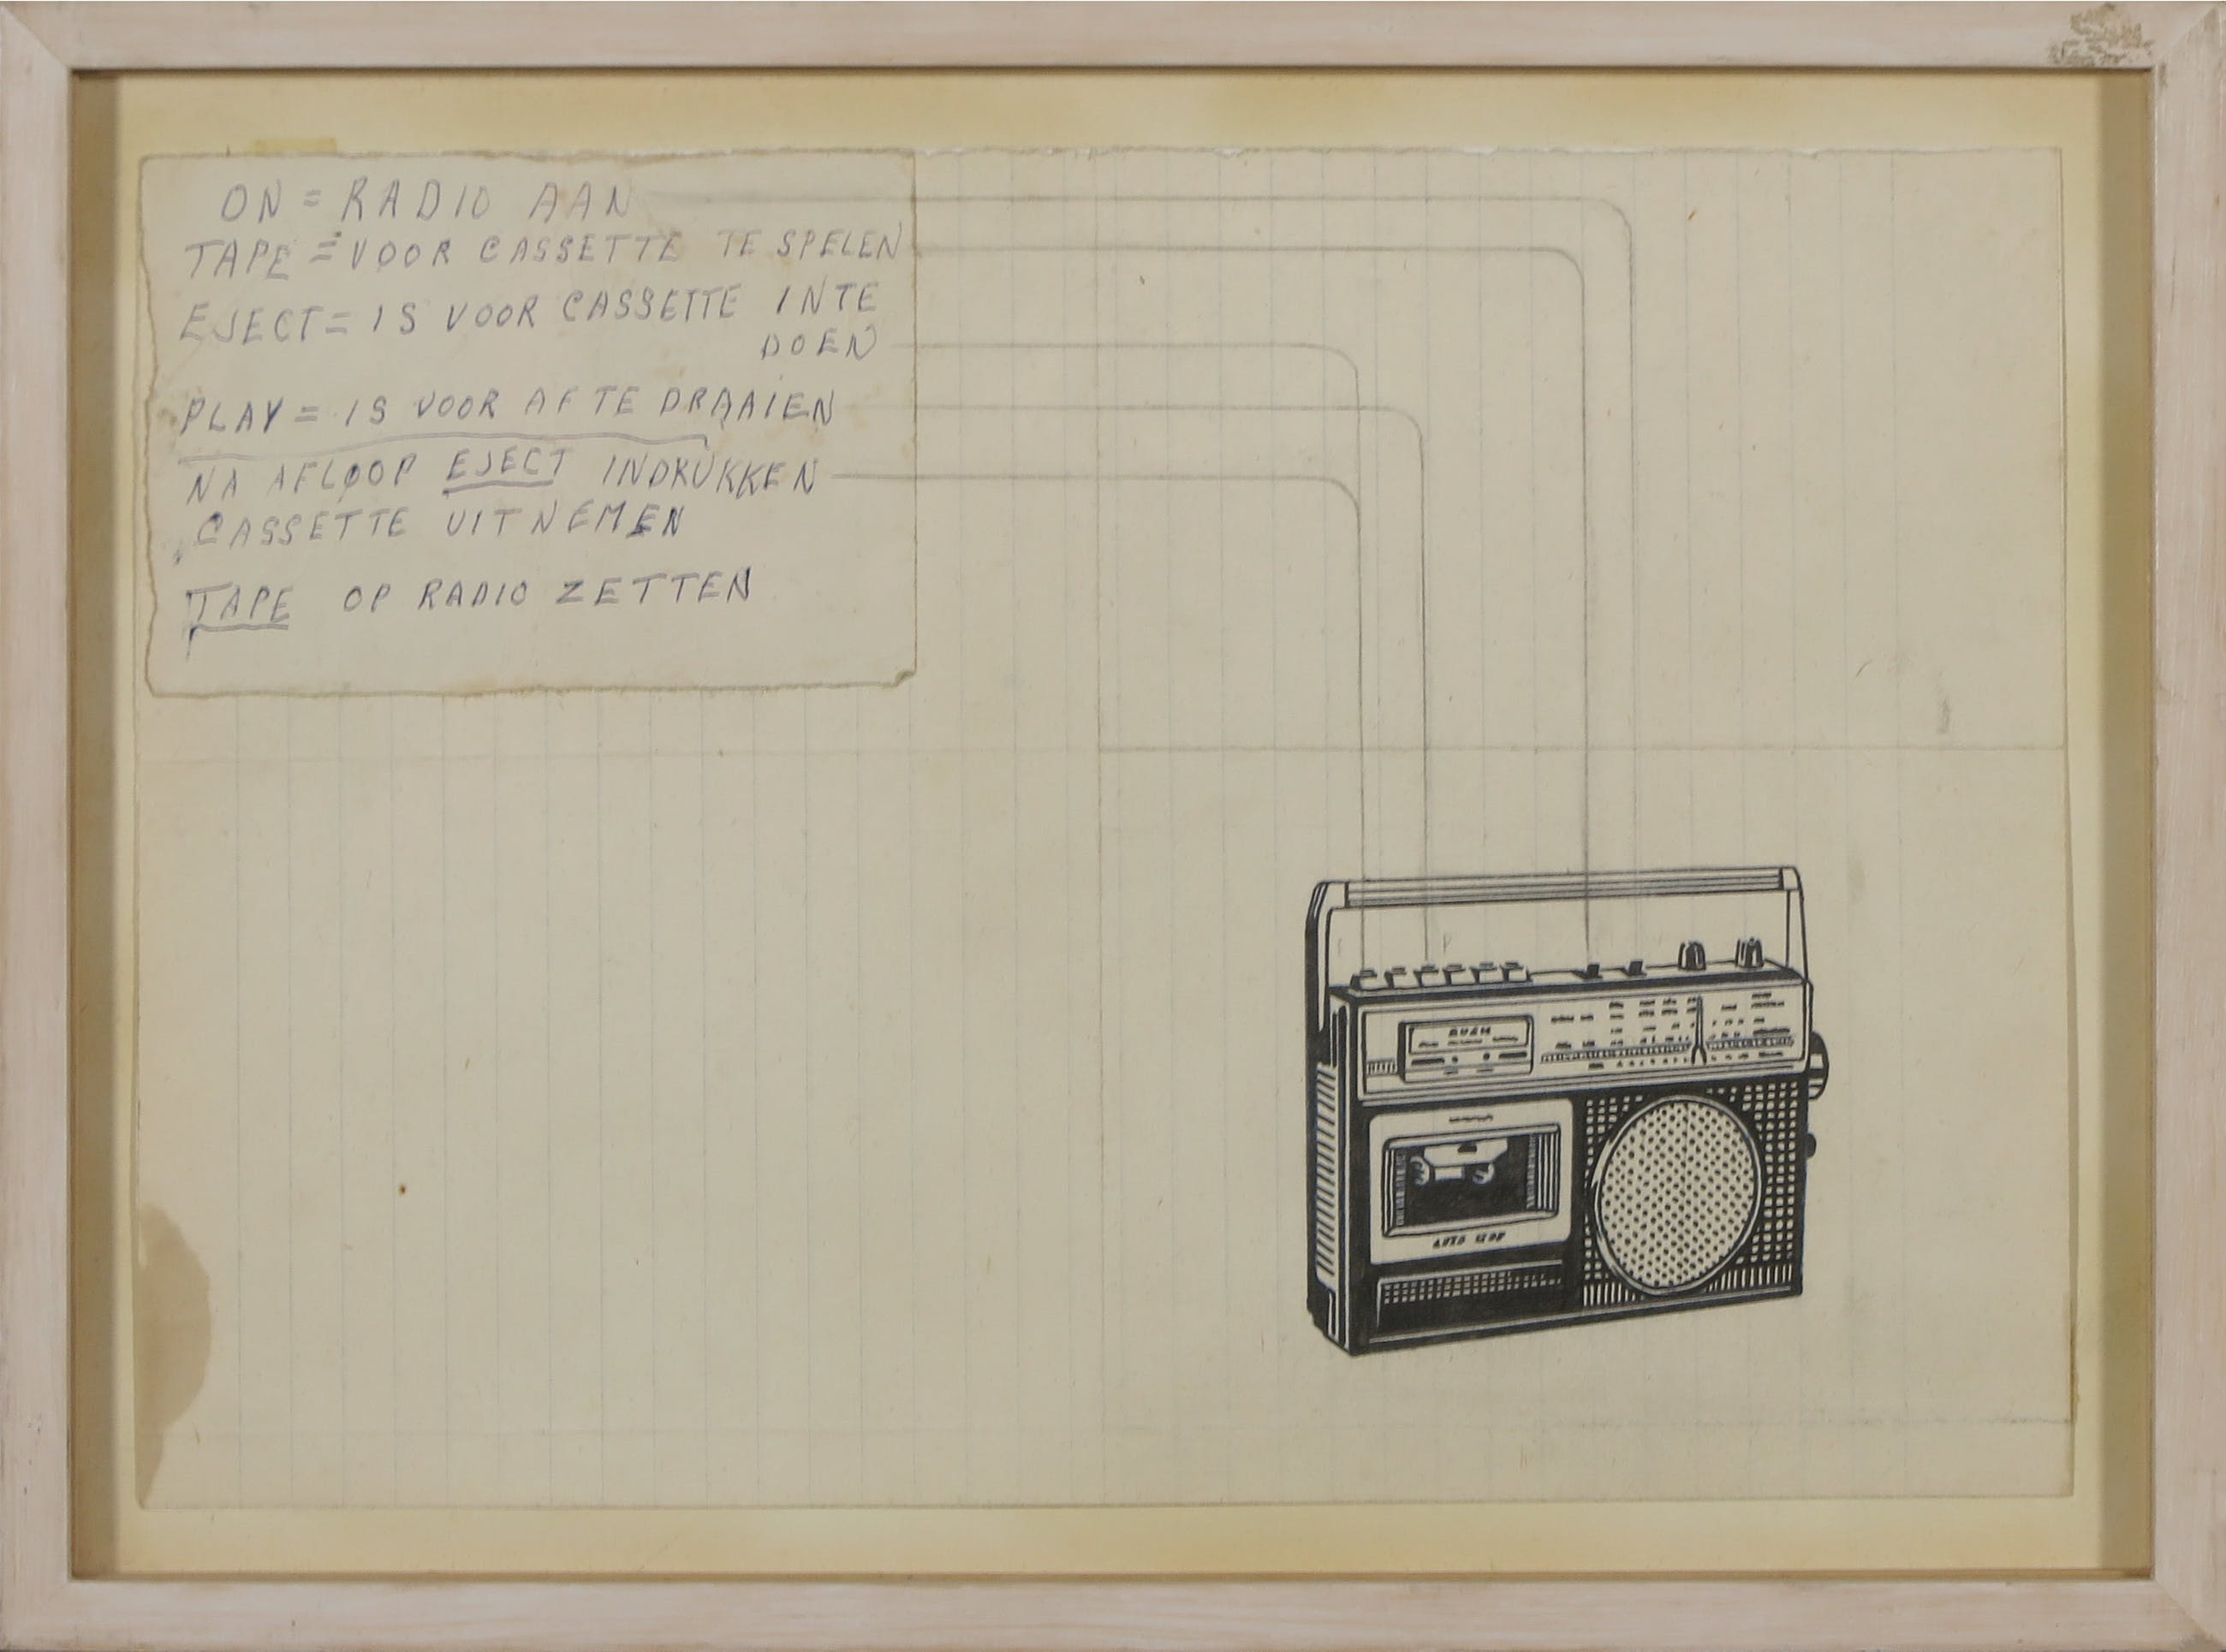 ON = RADIO AAN
TAPE = VOOR CASSETTE TE SPELEN
EJECT = IS VOOR CASSETTE INTE
DOEN
PLAY = IS VOOR AF TE DRAAIEN
NA AFLOOP EJECT INDRUKKEN
CASSETTE UITNEMEN
TAPE OP RADIO ZETTEN